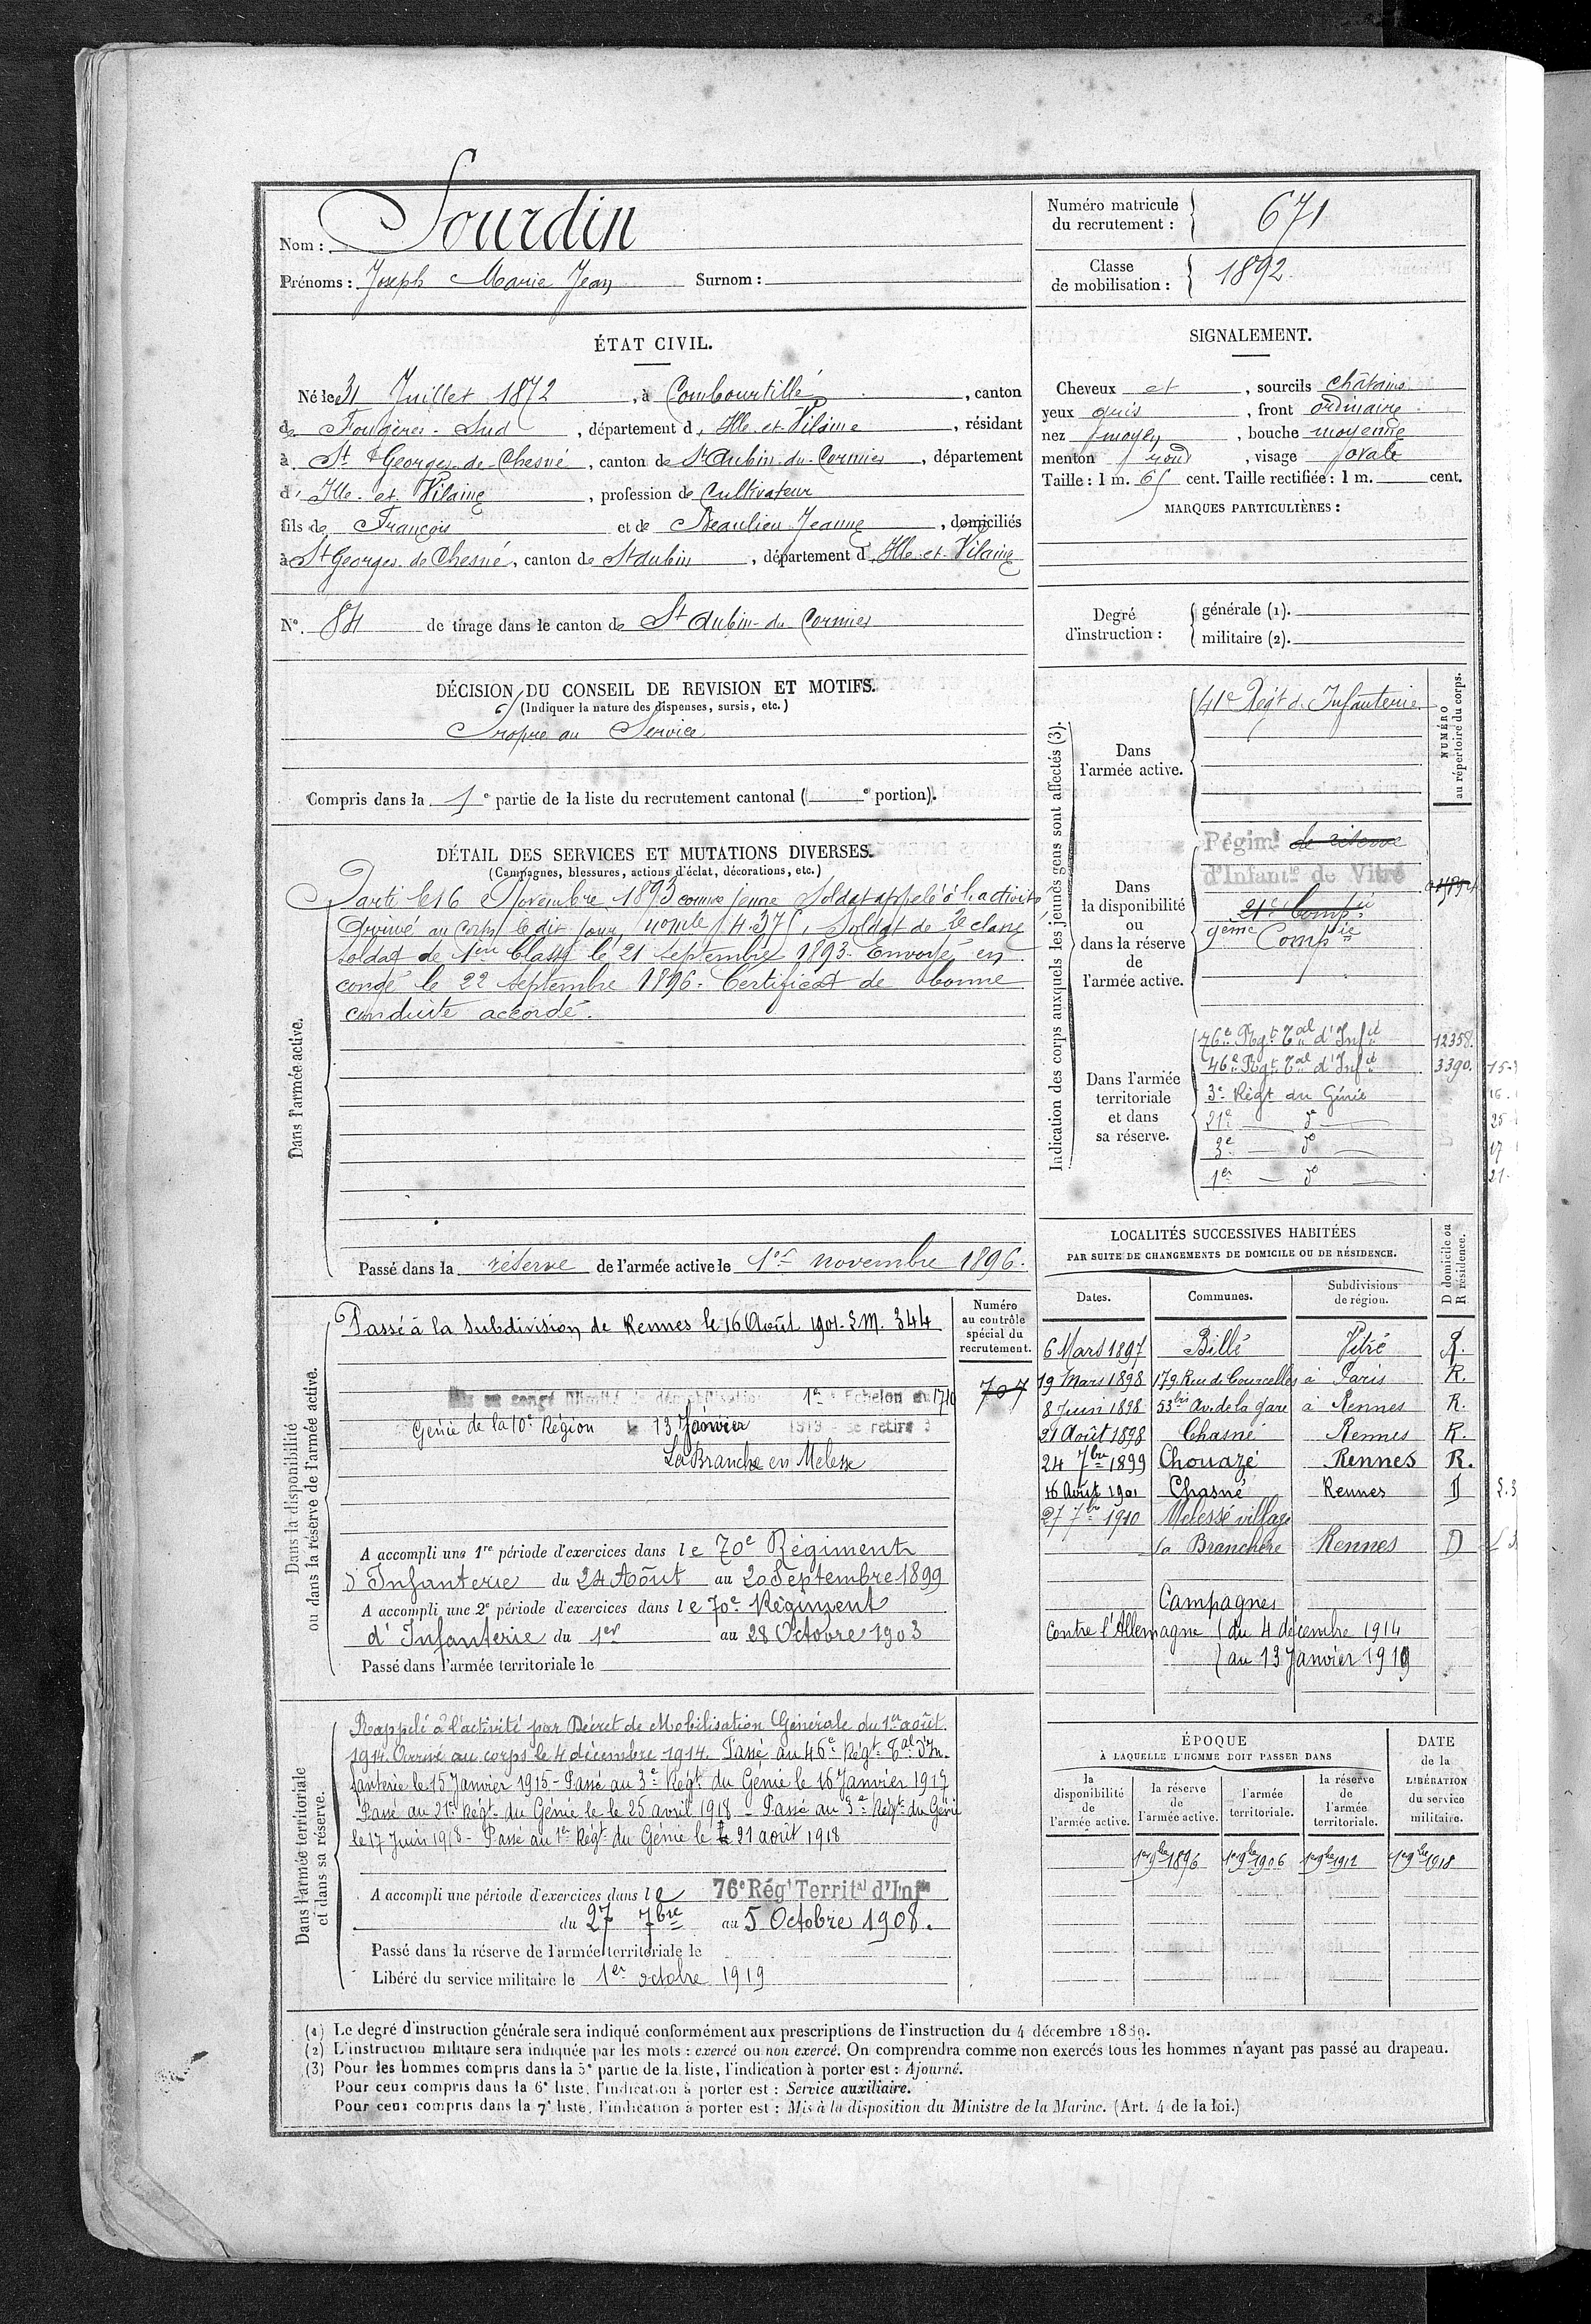 Nom : Sourdin
Prénoms : Joseph Marie Jean Surnom :
Numéro matricule du recrutement : 671
Classe de mobilisation : 1892.
ÉTAT CIVIL.
Né le 31 Juillet 1872, à Combourtillé, canton
de Fougères-Sud, département d'Ille-et-Vilaine, résidant
à St Georges-de-Chesné, canton de St Aubin-du-Cormier, département
d'Ille-et-Vilaine, profession de Cultivateur
fils de François et de Beaulieu Jeanne, domiciliés
à St Georges-de-Chesné, canton de St Aubin, département d'Ille-et-Vilaine
No. 84 de tirage dans le canton de St Aubin-du-Cormier
DÉCISION DU CONSEIL DE REVISION ET MOTIFS.
(Indiquer la nature des dispenses, sursis, etc.)
Propre au Service
Compris dans la 1e partie de la liste du recrutement cantonal ( e portion).
DÉTAIL DES SERVICES ET MUTATIONS DIVERSES.
(Campagnes, blessures, actions d'éclat, décorations, etc.)
Dans l'armée active.
Parti le 16 Novembre 1893 comme jeune Soldat appelé à l'activité
Arrivé au Corps le dit jour, , Soldat de 2e classe
Soldat de 1ère Classe le 21 septembre 1893. Envoyé en
congé le 22 septembre 1896. Certificat de bonne
conduite accordé.
Passé dans la réserve de l'armée active le 1er novembre 1896.
Dans la disponibilité
ou dans la réserve de l'armée active.
Numéro
au contrôle
spécial du
recrutement.
707
Passé à la Subdivision de Rennes le 16 Août 1901. S.M. 344
Mis en congé illimité de démobilisation 1er Echelon
Génie de la 10e Région le 13 Janvier 1919 se retire à
La Branche en Melesse
A accompli une 1re période d'exercices dans le 70e Régiment
d'Infanterie du 24 Août au 20 Septembre 1899
A accompli une 2e période d'exercices dans le 70e Régiment
d'Infanterie du 1er au 28 Octobre 1903
Passé dans l'armée territoriale le
Dans l'armée territoriale
et dans sa réserve.
Rappelé à l'activité par Décret de Mobilisation Générale du 1er août
1914. Arrivé au corps le 4 décembre 1914. Passé au 46e Régt Tal d'In-
fanterie le 15 Janvier 1915 - Passé au 3e Régt du Génie le 16 Janvier 1917
Passé au 21e Régt du Génie le le 25 avril 1918 - Passé au 3e Régt du Génie
le 17 Juin 1918 - Passé au 1er Régt du Génie le 21 août 1918
A accompli une période d'exercices dans le 76e Régt Territal d'Infie
du 27 7bre au 5 Octobre 1908.
Passé dans la réserve de l'armée territoriale le
Libéré du service militaire le 1er octobre 1919
SIGNALEMENT.
Cheveux et, sourcils châtains
yeux gris, front ordinaire
nez moyen, bouche moyenne
menton rond, visage ovale
Taille : 1 m. 65 cent. Taille rectifiée : 1 m. cent.
MARQUES PARTICULIÈRES :
Degré d'instruction :
générale (1).
militaire (2).
Indication des corps auxquels les jeunes gens sont affectés (3).
NUMÉRO
au répertoire du corps.
Dans l'armée active.
41e Régt d'Infanterie
Dans la disponibilité ou dans la réserve de l'armée active.
Régimt de réserve
d'Infantie de Vitré
21e Compie
9ème Compie
Dans l'armée territoriale et dans sa réserve.
76e Rgt Tal d'Infie 12358.
46e Rgt Tal d'Infie 3390. 15-
3e Régt du Génie 16.
21e do 25-
3e do 17
1er do 21-
LOCALITÉS SUCCESSIVES HABITÉES
PAR SUITE DE CHANGEMENTS DE DOMICILE OU DE RÉSIDENCE.
D domicile ou
R résidence.
Dates. Communes. Subdivisions de région.
6 Mars 1897 Billé Vitré R.
19 Mars 1898 179 Rue de Courcelles à Paris R.
8 Juin 1898 53bis Av. de la gare à Rennes R.
21 Août 1898 Chasné Rennes R.
24 7bre 1899 Chouazé Rennes R.
16 Août 1901 Chasné Rennes D
27 7bre 1910 Melesse village
la Branchère Rennes D
Campagnes
Contre l'Allemagne du 4 décembre 1914
au 13 Janvier 1919
ÉPOQUE
À LAQUELLE L'HOMME DOIT PASSER DANS
la disponibilité de l'armée active.
la réserve de l'armée active.
l'armée territoriale.
la réserve de l'armée territoriale.
DATE de la LIBÉRATION du service militaire.
1er 9bre 1896 1er 9bre 1906 1er 9bre 1912 1er 9bre 1918
(1) Le degré d'instruction générale sera indiqué conformément aux prescriptions de l'instruction du 4 décembre 1889.
(2) L'instruction militaire sera indiquée par les mots : exercé ou non exercé. On comprendra comme non exercés tous les hommes n'ayant pas passé au drapeau.
(3) Pour les hommes compris dans la 5e partie de la liste, l'indication à porter est : Ajourné.
Pour ceux compris dans la 6e liste, l'indication à porter est : Service auxiliaire.
Pour ceux compris dans la 7e liste, l'indication à porter est : Mis à la disposition du Ministre de la Marine. (Art. 4 de la loi.)